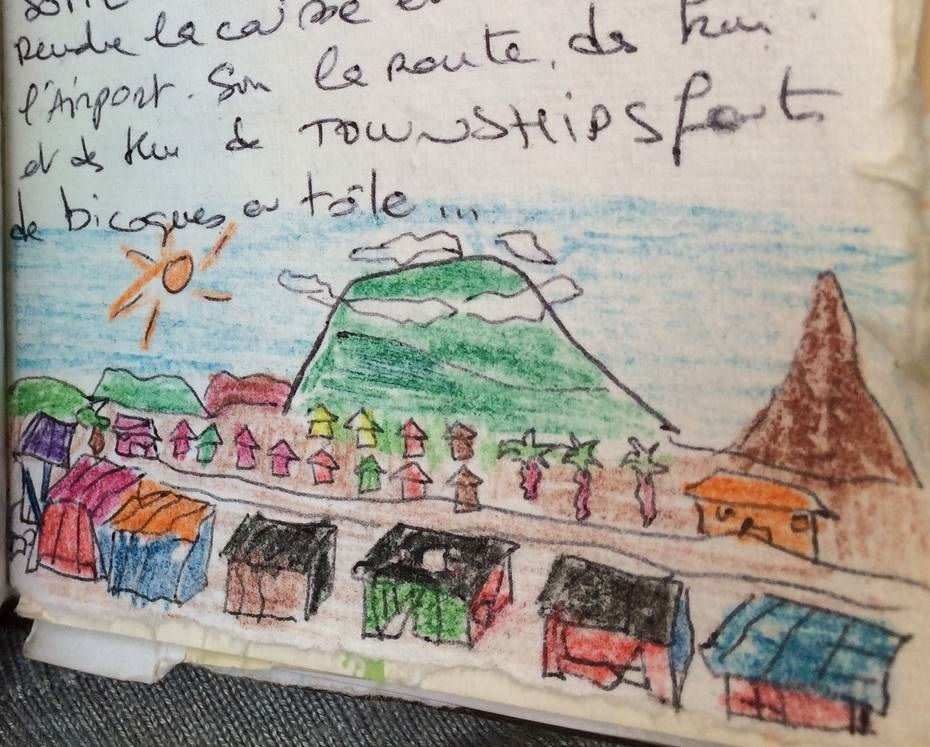 rendre la caisse
l'Airport. Sur la route, des km
et des km de TOWNSHIPS faits
de bicoques en tôle...